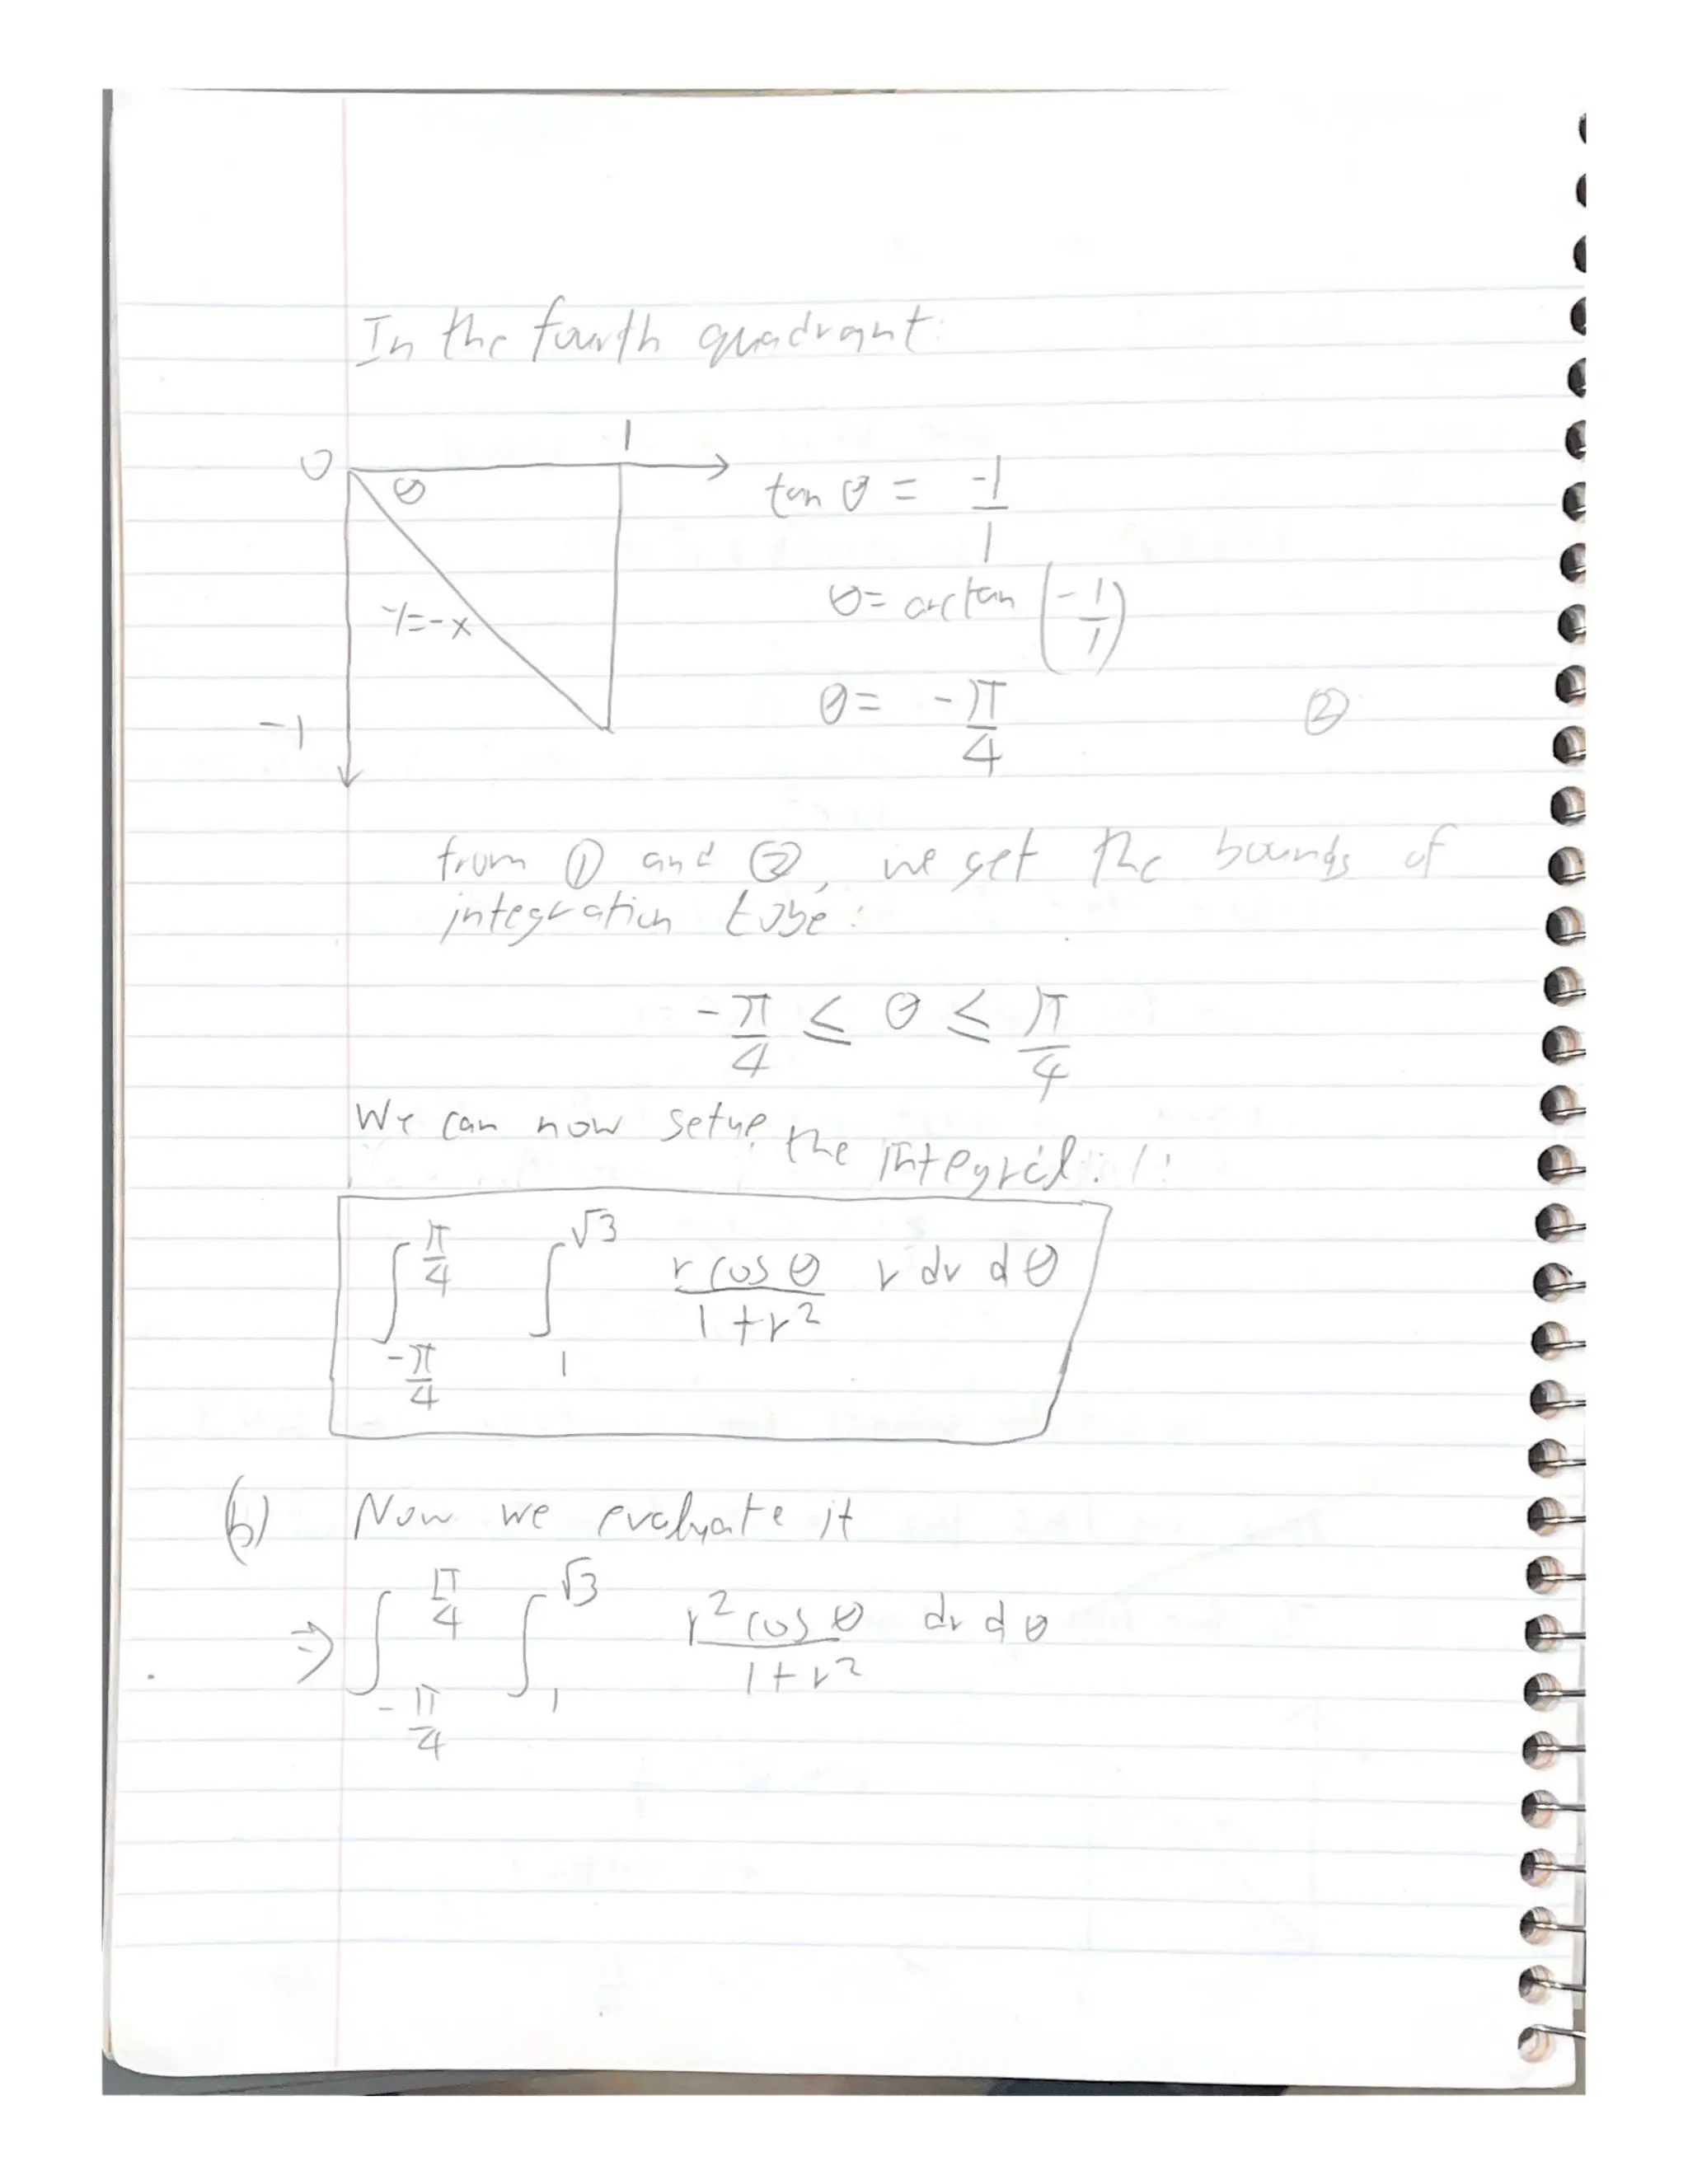 In the fourth quadrant:
0 θ 1
y=-x
-1
tan θ = -1/1
θ = arctan (-1/1)
θ = -π/4 ②
from ① and ②, we get the bounds of
integration to be:
-π/4 ≤ θ ≤ π/4
We can now setup the integral:
∫_{-π/4}^{π/4} ∫_{1}^{√3} (r cos θ)/(1+r²) r dr dθ
(b) Now we evaluate it
⇒ ∫_{-π/4}^{π/4} ∫_{1}^{√3} (r² cos θ)/(1+r²) dr dθ